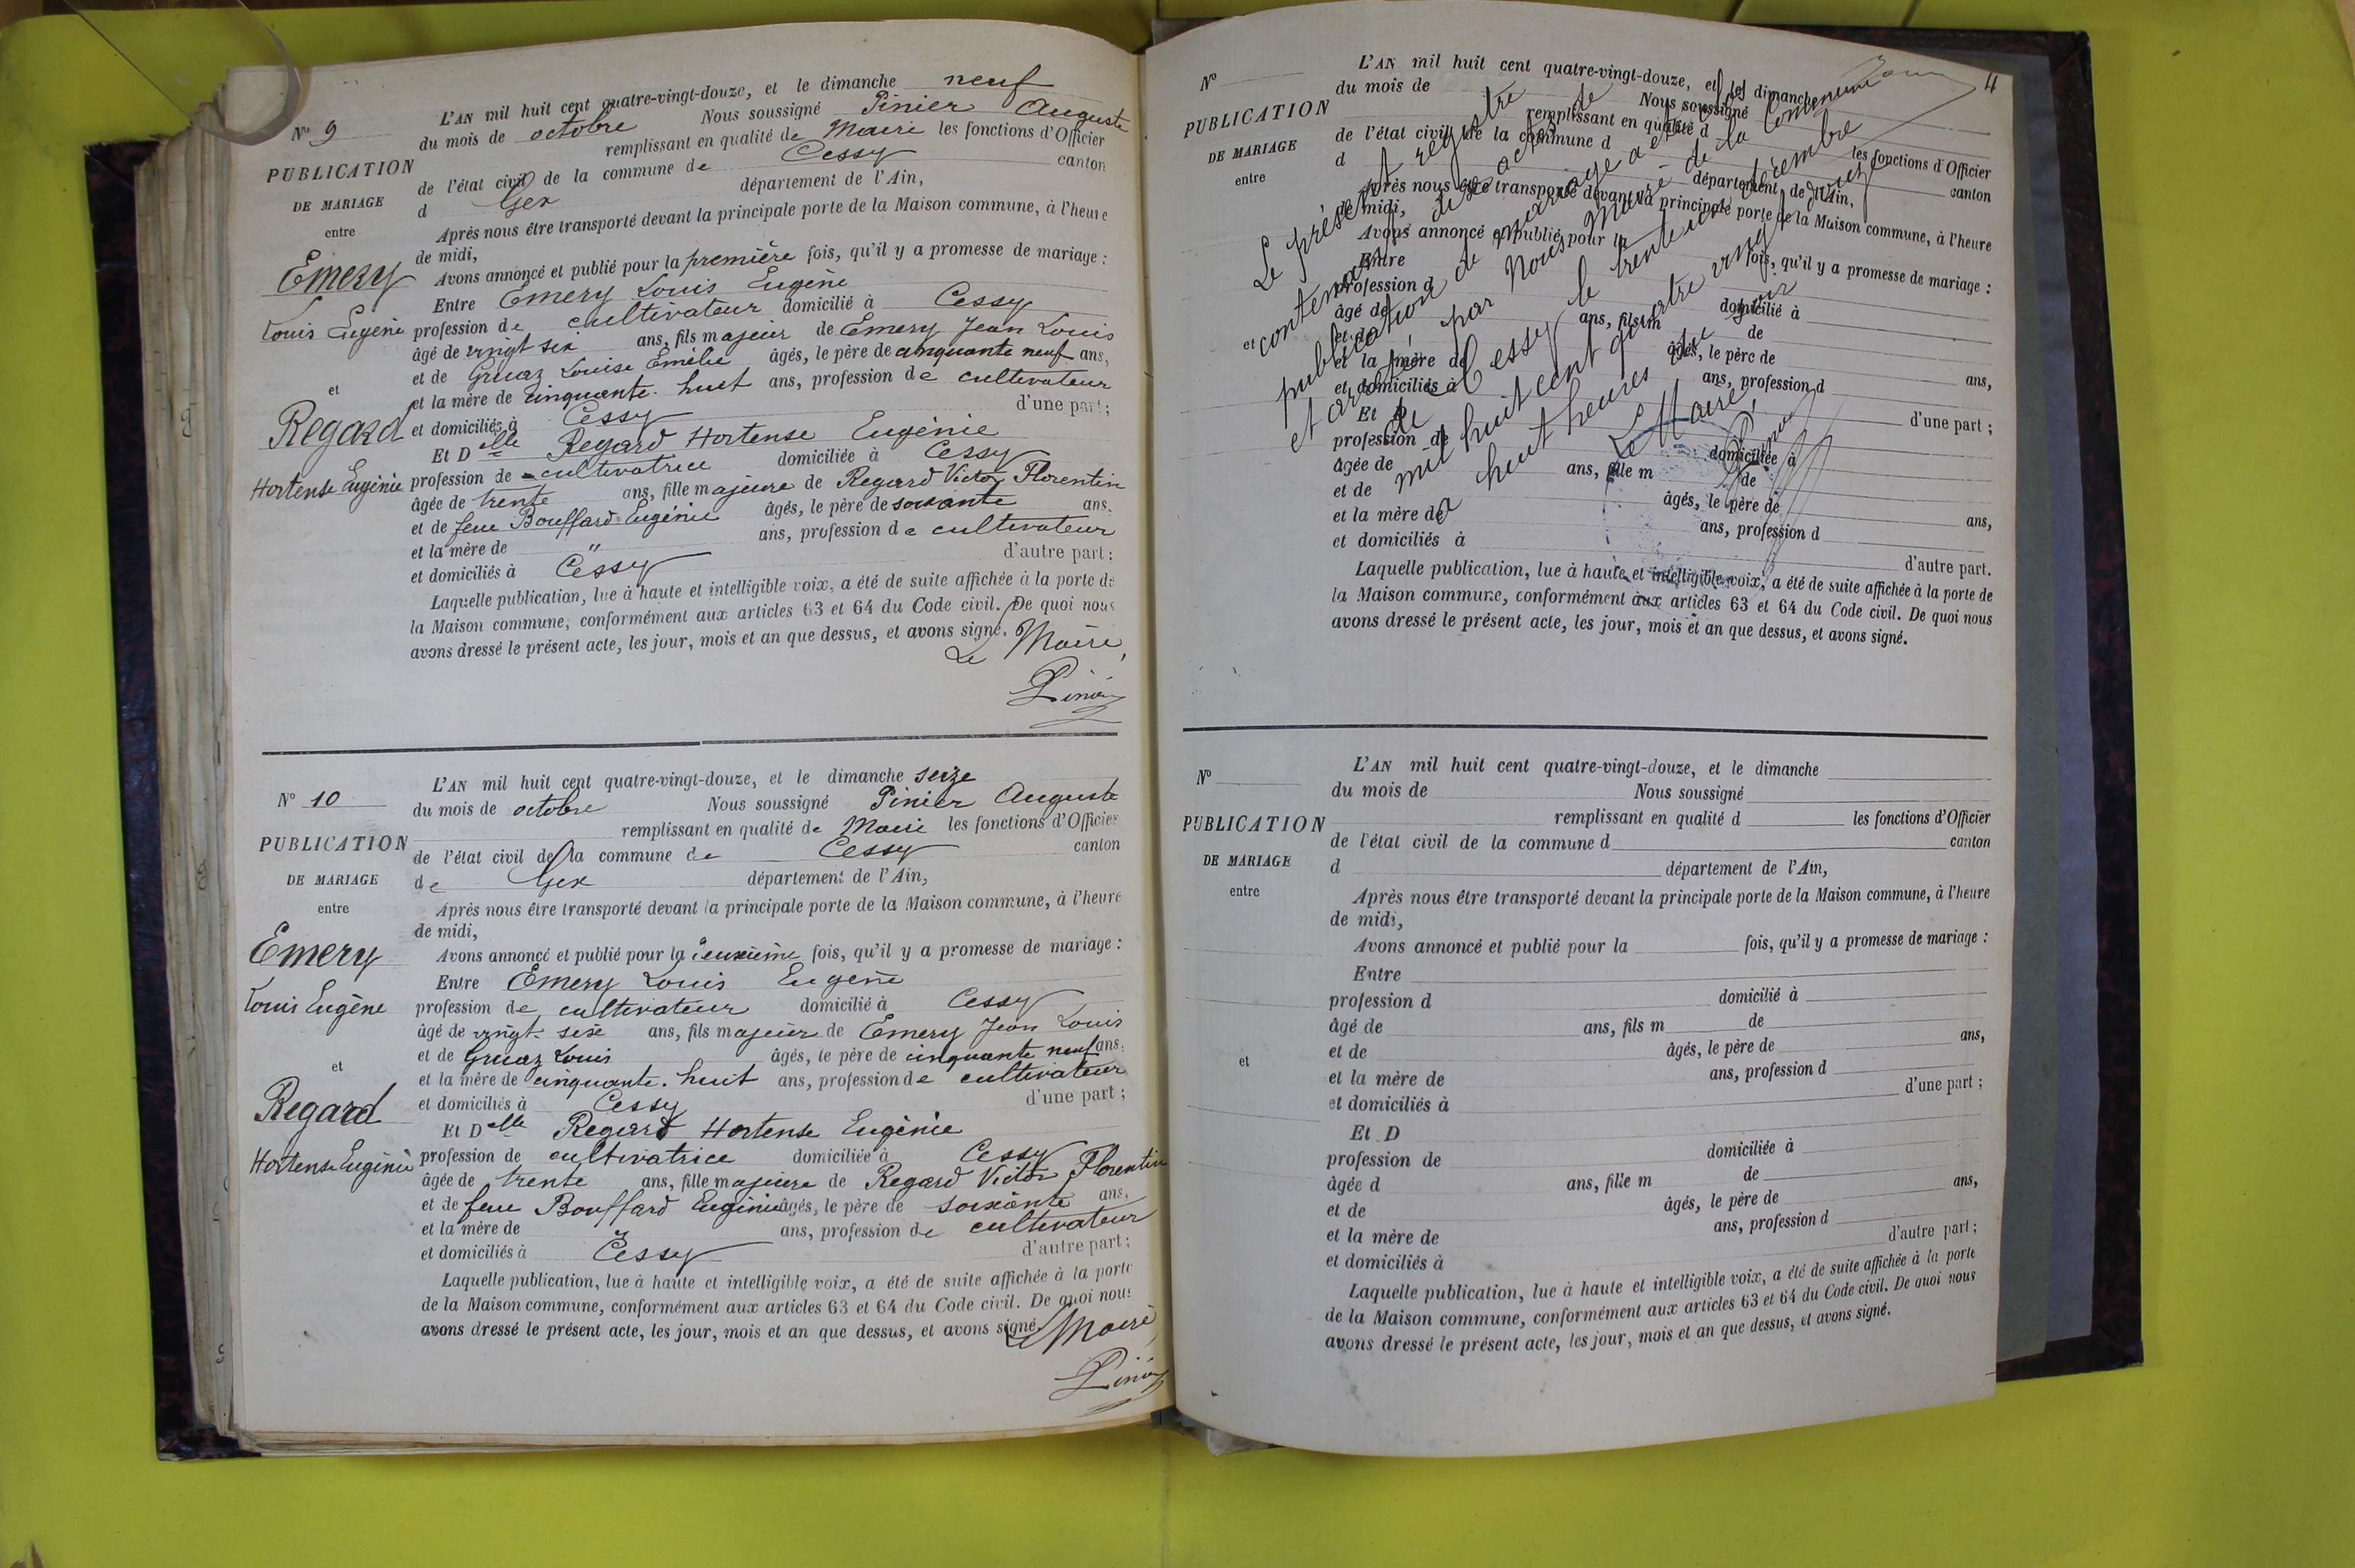 N° 9
PUBLICATION
DE MARIAGE
entre
Emery
Louis Eugène
et
Regard
Hortense Eugénie
L'AN mil huit cent quatre-vingt-douze, et le dimanche neuf
du mois de octobre Nous soussigné Pinier Auguste
remplissant en qualité de Maire les fonctions d'Officier
de l'état civil de la commune de Cessy canton
d Gex département de l'Ain,
Après nous être transporté devant la principale porte de la Maison commune, à l'heure
de midi,
Avons annoncé et publié pour la première fois, qu'il y a promesse de mariage :
Entre Emery Louis Eugène
profession de cultivateur domicilié à Cessy
âgé de vingt six ans, fils majeur de Emery Jean Louis
et de Gruaz Louise Emélie âgés, le père de cinquante neuf ans,
et la mère de cinquante. huit ans, profession de cultivateur
et domiciliés à Cessy d'une part;
Et Delle Regard Hortense Eugénie
profession de cultivatrice domiciliée à Cessy
âgée de trente ans, fille majeure de Regard Victor Florentin
et de feue Bouffard Eugénie âgés, le père de soixante ans.
et la mère de " ans, profession de cultivateur
et domiciliés à Cessy d'autre part;
Laquelle publication, lue à haute et intelligible voix, a été de suite affichée à la porte de
la Maison commune, conformément aux articles 63 et 64 du Code civil. De quoi nous
avons dressé le présent acte, les jour, mois et an que dessus, et avons signé.
Le Maire,
Pinier
N° 10
PUBLICATION
DE MARIAGE
entre
Emery
Louis Eugène
et
Regard
Hortense Eugénie
L'AN mil huit cent quatre-vingt-douze, et le dimanche seize
du mois de octobre Nous soussigné Pinier Auguste
remplissant en qualité de Maire les fonctions d'Officier
de l'état civil de la commune de Cessy canton
de Gex département de l'Ain,
Après nous être transporté devant la principale porte de la Maison commune, à l'heure
de midi,
Avons annoncé et publié pour la deuxième fois, qu'il y a promesse de mariage :
Entre Emery Louis Eugène
profession de cultivateur domicilié à Cessy
âgé de vingt. six ans, fils majeur de Emery Jean Louis
et de Gruaz Louis âgés, le père de cinquante neuf ans,
et la mère de cinquante. huit ans, profession de cultivateur
et domiciliés à Cessy d'une part ;
Et Delle Regard Hortense Eugénie
profession de cultivatrice domiciliée à Cessy
âgée de trente ans, fille majeure de Regard Victor Florentin
et de feue Bouffard Eugénie âgés, le père de soixante ans,
et la mère de " ans, profession de cultivateur
et domiciliés à Cessy d'autre part;
Laquelle publication, lue à haute et intelligible voix, a été de suite affichée à la porte
de la Maison commune, conformément aux articles 63 et 64 du Code civil. De quoi nous
avons dressé le présent acte, les jour, mois et an que dessus, et avons signé.
Le Maire,
Pinier
4
N°
PUBLICATION
DE MARIAGE
entre
et
L'AN mil huit cent quatre-vingt-douze, et le dimanche
du mois de Nous soussigné
remplissant en qualité d les fonctions d'Officier
de l'état civil de la commune d canton
d département de l'Ain,
Après nous être transporté devant la principale porte de la Maison commune, à l'heure
de midi,
Avons annoncé et publié pour la fois, qu'il y a promesse de mariage :
Entre
profession d domicilié à
âgé de ans, fils m de
et de âgés, le père de ans,
et la mère de ans, profession d
et domiciliés à d'une part ;
Et D
profession de domiciliée à
âgée de ans, fille m de
et de âgés, le père de ans,
et la mère de ans, profession d
et domiciliés à d'autre part.
Laquelle publication, lue à haute et intelligible voix, a été de suite affichée à la porte de
la Maison commune, conformément aux articles 63 et 64 du Code civil. De quoi nous
avons dressé le présent acte, les jour, mois et an que dessus, et avons signé.
Le présent registre
contenant dix actes de
publication de mariage a été clos
et arrêté par nous Maire de la Commune
de Cessy le trente un décembre
mil huit cent quatre vingt douze
à huit heures du soir
Le Maire,
Pinier
N°
PUBLICATION
DE MARIAGE
entre
et
L'AN mil huit cent quatre-vingt-douze, et le dimanche
du mois de Nous soussigné
remplissant en qualité d les fonctions d'Officier
de l'état civil de la commune d canton
d département de l'Ain,
Après nous être transporté devant la principale porte de la Maison commune, à l'heure
de midi,
Avons annoncé et publié pour la fois, qu'il y a promesse de mariage :
Entre
profession d domicilié à
âgé de ans, fils m de
et de âgés, le père de ans,
et la mère de ans, profession d
et domiciliés à d'une part ;
Et D
profession de domiciliée à
âgée d ans, fille m de
et de âgés, le père de ans,
et la mère de ans, profession d
et domiciliés à d'autre part;
Laquelle publication, lue à haute et intelligible voix, a été de suite affichée à la porte
de la Maison commune, conformément aux articles 63 et 64 du Code civil. De quoi nous
avons dressé le présent acte, les jour, mois et an que dessus, et avons signé.